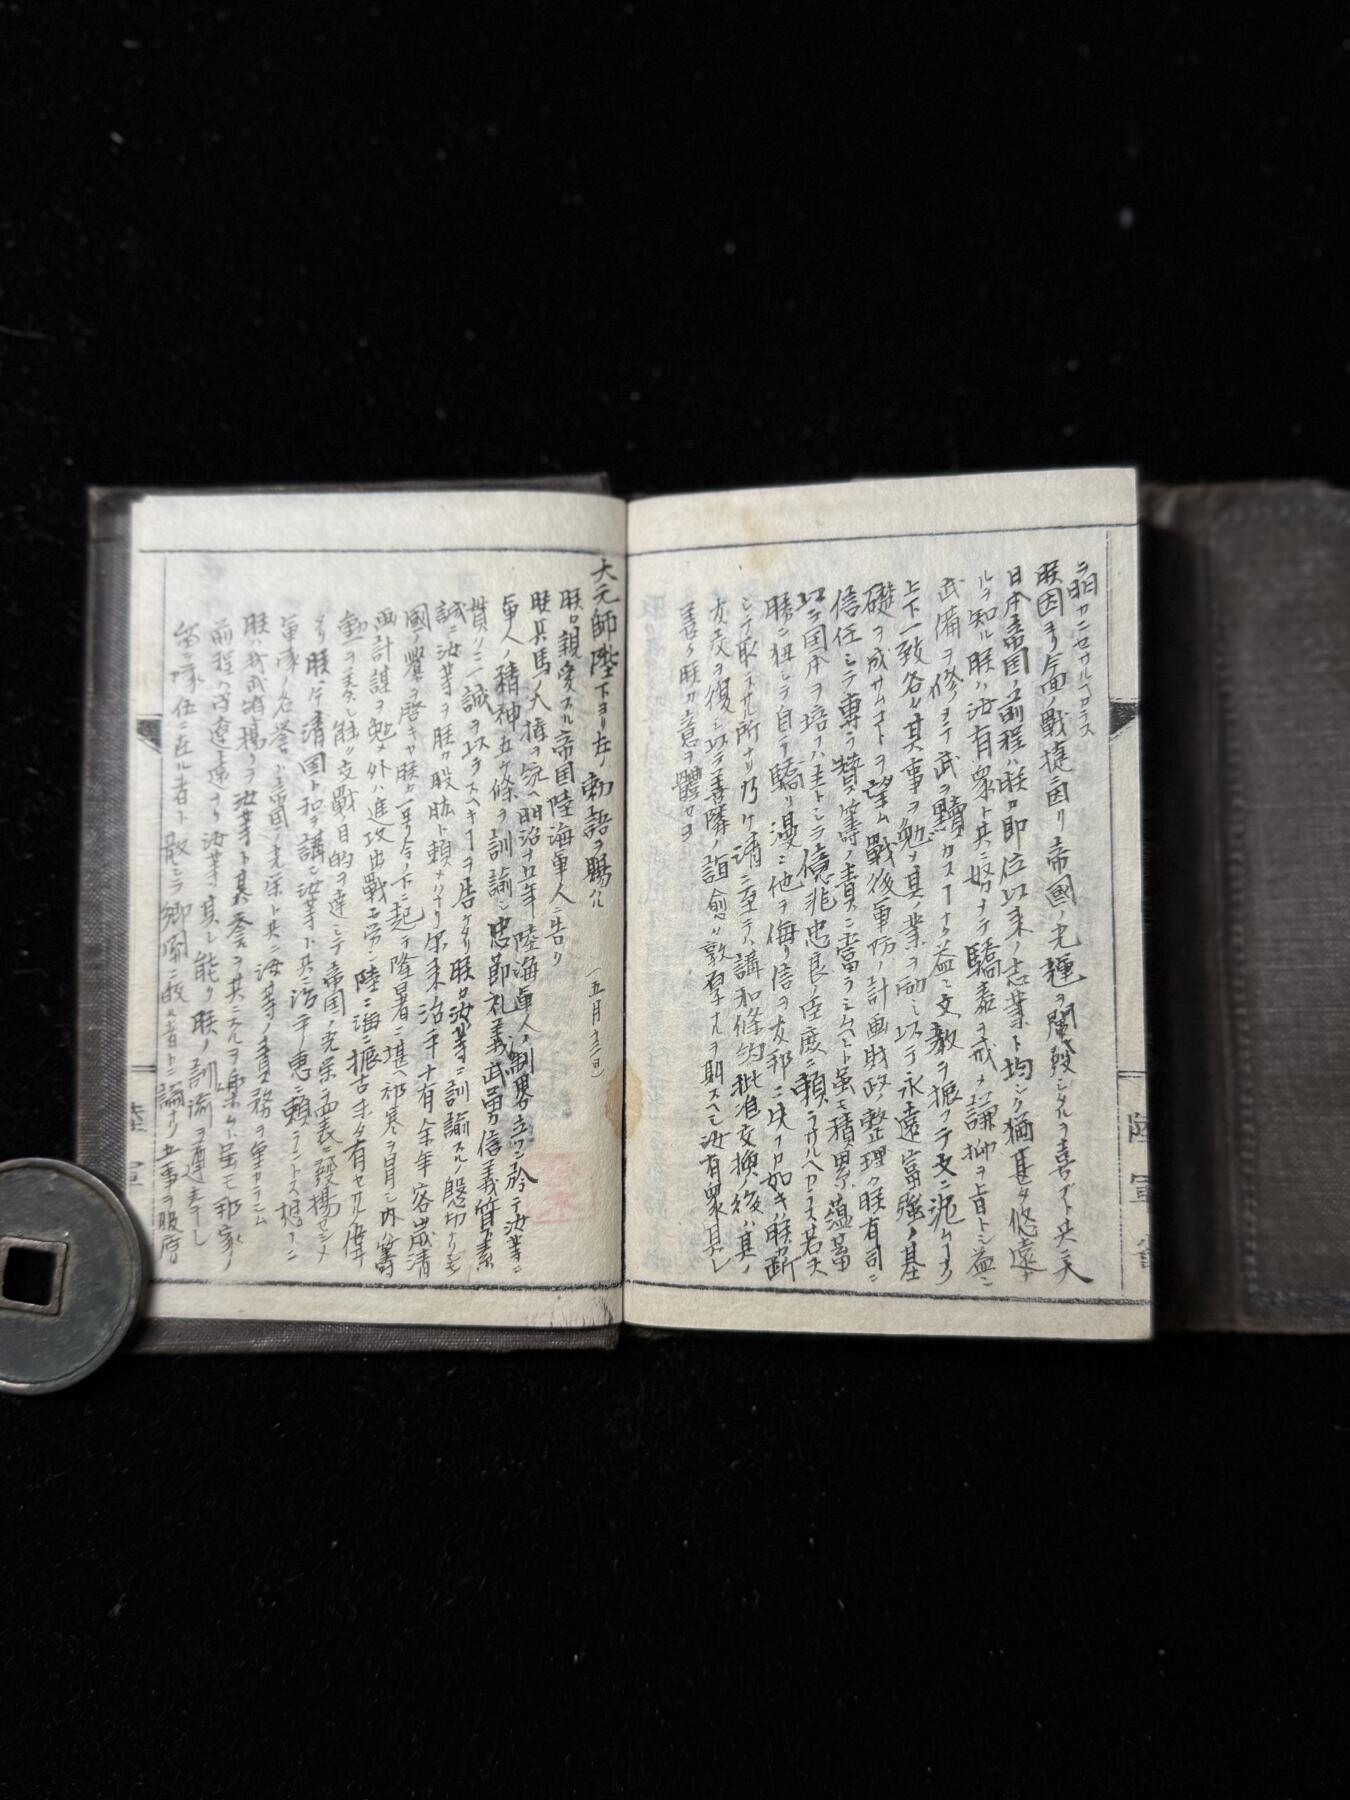 ラ明カニセサルヘカラス
朕因ヨリ今回ノ戰捷ニ因リ帝國ノ光輝ヲ闡發シタルヲ喜フト共ニ大
日本帝国ノ前程ハ朕カ即位以来ノ志業ト均シク猶甚タ悠遠ナ
ルヲ知ル朕ハ汝有衆ト共ニ努メテ驕泰ヲ戒メ謙抑ヲ旨トシ益々
武備ヲ修メテ武ヲ黷スコトナク益々文教ヲ振フテ文ニ泥ムコトナク
上下一致各々其事ヲ勉メ其ノ業ヲ励ミ以テ永遠富強ノ基
礎ヲ成サムコトヲ望ム戰後軍防ノ計画財政ノ整理ハ朕有司ニ
信任シテ専ラ賛籌ノ責ニ當ラシムヘト雖モ積累蘊蓄
以テ国本ヲ培フハ主トシテ億兆忠良ノ臣庶ニ頼ラサルヘカラス若夫
勝ニ狃レテ自ラ驕リ漫ニ他ヲ侮リ信ヲ友邦ニ失フカ如キハ朕カ断
シテ取ラサル所ナリ乃ケ清ニ至テハ講和條約批准交換ノ後ハ其ノ
友交ヲ復シ以テ善隣ノ誼愈々敦厚ナルヲ期スヘシ汝有衆其レ
善ク朕カ意ヲ體セヨ
陸軍
大元師陛下ヨリ左ノ勅語ヲ賜ハル (五月十三日)
朕カ親愛スル帝国陸海軍人ニ告ク
朕兵馬ノ大権ヲ統ヘ明治十五年陸海軍人ノ制畧立ツニ於テ汝等ニ
軍人ノ精神五ケ條ヲ訓諭シ忠節礼義武勇信義質素
貫クニ一誠ヲ以テスヘキコトヲ告ケタリ朕カ汝等ニ訓諭スルノ懇切ナルモ
誠ニ汝等ヲ朕カ股肱ト頼メハナリ尓来治平十有余年客歳清
國ノ釁ヲ啓キヤ朕カ一号令ノ下ニ起テ隆暑ニ堪ヘ祁寒ヲ冒シ内籌
画計謀ヲ勉メ外ハ進攻出戰ニ労シ陸ニ海ニ振古未タ有セサルノ偉
勲ヲ奏シ能ク交戰目的ヲ達シテ帝国ノ光栄ヲ中表ニ發揚セシメ
タリ朕ハ今清国ト和ヲ講シ汝等ト共ニ治平ノ恵ニ頼テントス想フニ
軍隊ノ名誉ハ帝国ノ光栄ト共ニ汝等ノ責務ヲ重カラシム
朕ハ我武ノ鷹揚ヲ汝等ト其誉ヲ共ニスルヲ樂ムト雖モ邦家ノ
前程ハ尚遼遠ナリ汝等其レ能ク朕ノ訓諭ヲ遵奉シ
留テ隊伍ニ在ル者ト散シテ郷閭ニ歸ル者トニ論ナク五事ヲ服膺
陸軍